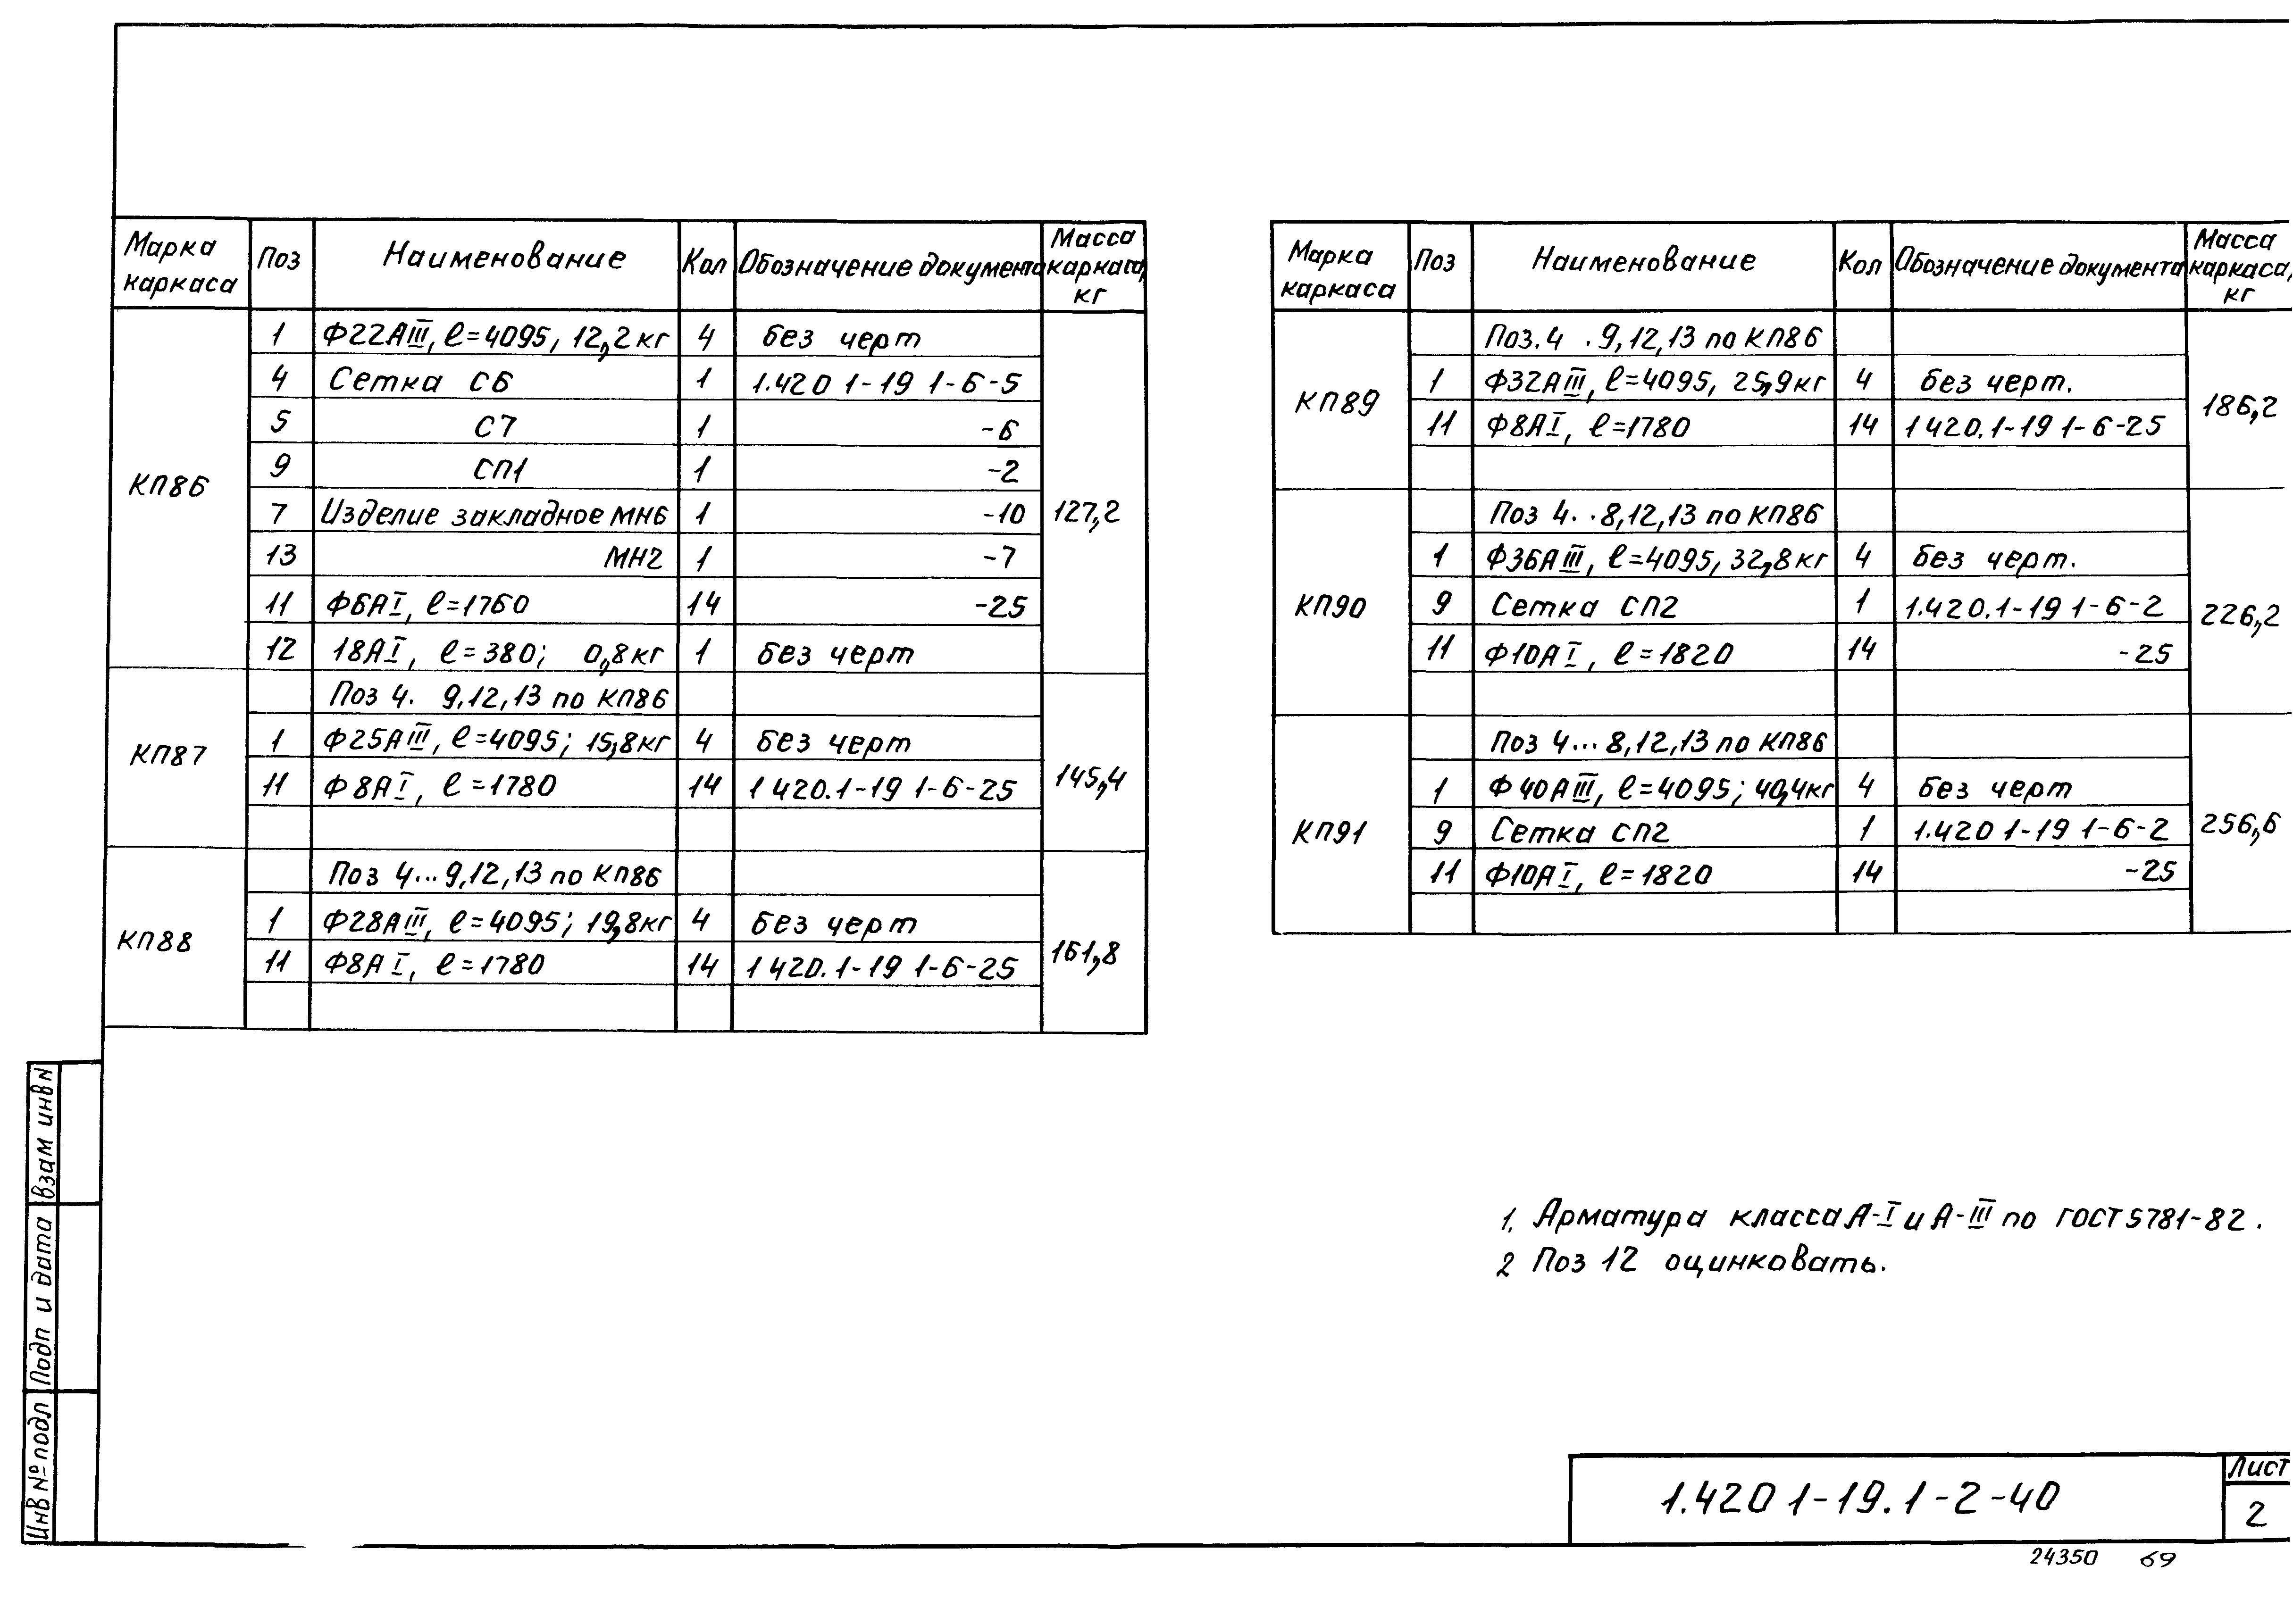 Марка каркаса | Поз | Наименование | Кол | Обозначение документа | Масса каркаса, кг
КП86 | 1 | Ф22АIII, ℓ=4095, 12,2кг | 4 | без черт | 127,2
4 | Сетка С6 | 1 | 1.420 1-19 1-6-5
5 | С7 | 1 | -6
9 | СП1 | 1 | -2
7 | Изделие закладное МН6 | 1 | -10
13 | МН2 | 1 | -7
11 | Ф6АI, ℓ=1760 | 14 | -25
12 | 18АI, ℓ=380; 0,8кг | 1 | без черт
КП87 | Поз 4. 9,12,13 по КП86 | 145,4
1 | Ф25АIII, ℓ=4095; 15,8кг | 4 | без черт
11 | Ф8АI, ℓ=1780 | 14 | 1 420.1-19 1-6-25
КП88 | Поз 4...9,12,13 по КП86 | 161,8
1 | Ф28АIII, ℓ=4095; 19,8кг | 4 | без черт
11 | Ф8АI, ℓ=1780 | 14 | 1 420.1-19 1-6-25
Марка каркаса | Поз | Наименование | Кол | Обозначение документа | Масса каркаса, кг
КП89 | Поз.4 .9,12,13 по КП86 | 186,2
1 | Ф32АIII, ℓ=4095, 25,9кг | 4 | без черт.
11 | Ф8АI, ℓ=1780 | 14 | 1 420.1-19 1-6-25
КП90 | Поз 4. .8,12,13 по КП86 | 226,2
1 | Ф36АIII, ℓ=4095, 32,8кг | 4 | без черт.
9 | Сетка СП2 | 1 | 1.420.1-19 1-6-2
11 | Ф10АI, ℓ=1820 | 14 | -25
КП91 | Поз 4...8,12,13 по КП86 | 256,6
1 | Ф40АIII, ℓ=4095; 40,4кг | 4 | без черт
9 | Сетка СП2 | 1 | 1.420 1-19 1-6-2
11 | Ф10АI, ℓ=1820 | 14 | -25
1. Арматура класса А-I и А-III по ГОСТ 5781-82.
2 Поз 12 оцинковать.
Взам инв N
Подп и дата
Инв № подл
1.420 1-19.1-2-40
Лист
2
24350 69